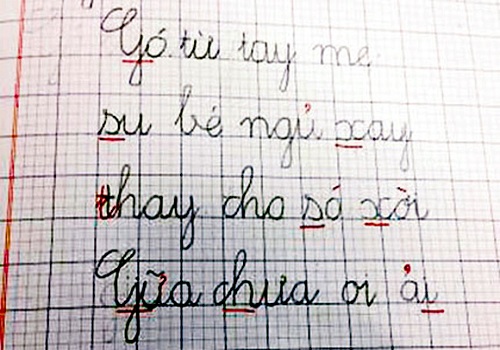 Gó từ tay me
su bé ngủ xay
thay cho só xời
Gữa chưa oi ải